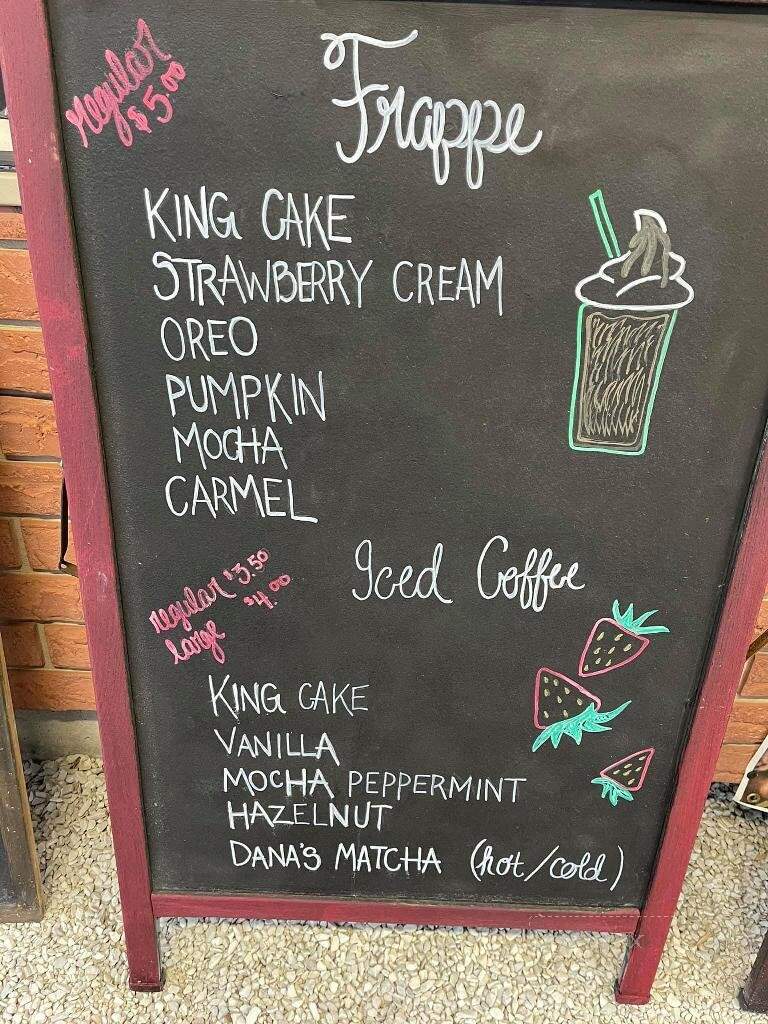 regular
$5.00
Frappe
KING CAKE
STRAWBERRY CREAM
OREO
PUMPKIN
MOCHA
CARMEL
Iced Coffee
regular $3.50
large $4.00
KING CAKE
VANILLA
MOCHA PEPPERMINT
HAZELNUT
DANA'S MATCHA (hot/cold)